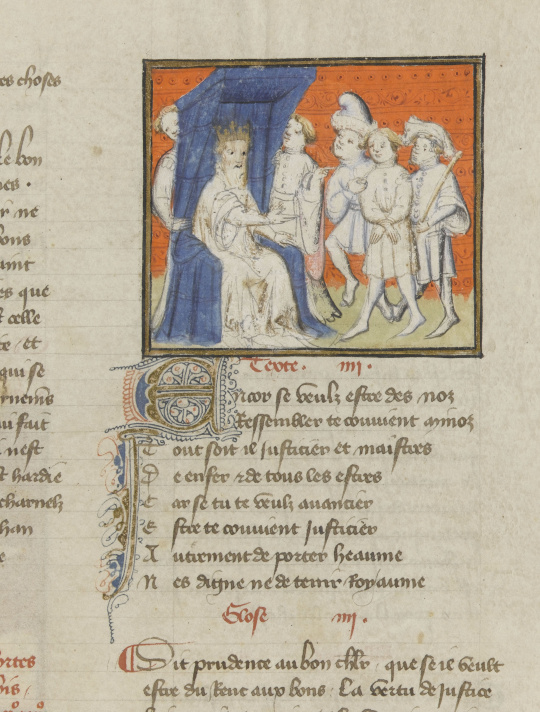 es choses
le bon
es .
r ne
ons
aint
es que
t celle
te / et
qui se
ui fait
nest
t hardie
charnelz
han
e
Texte . iiij .
Encor se veulz estre des noz
Ressembler te couvient minoz
Tout soit il justicier et maistres
De enfer & de tous les estres
Car se tu te veulz avancier
Estre te couvient justicier
Autrement de porter heaume
Nes digne ne de tenir royaume
Glose iiij .
Dit prudence au bon chlr . que se il veult
estre du renc aux bons . La vertu de justice